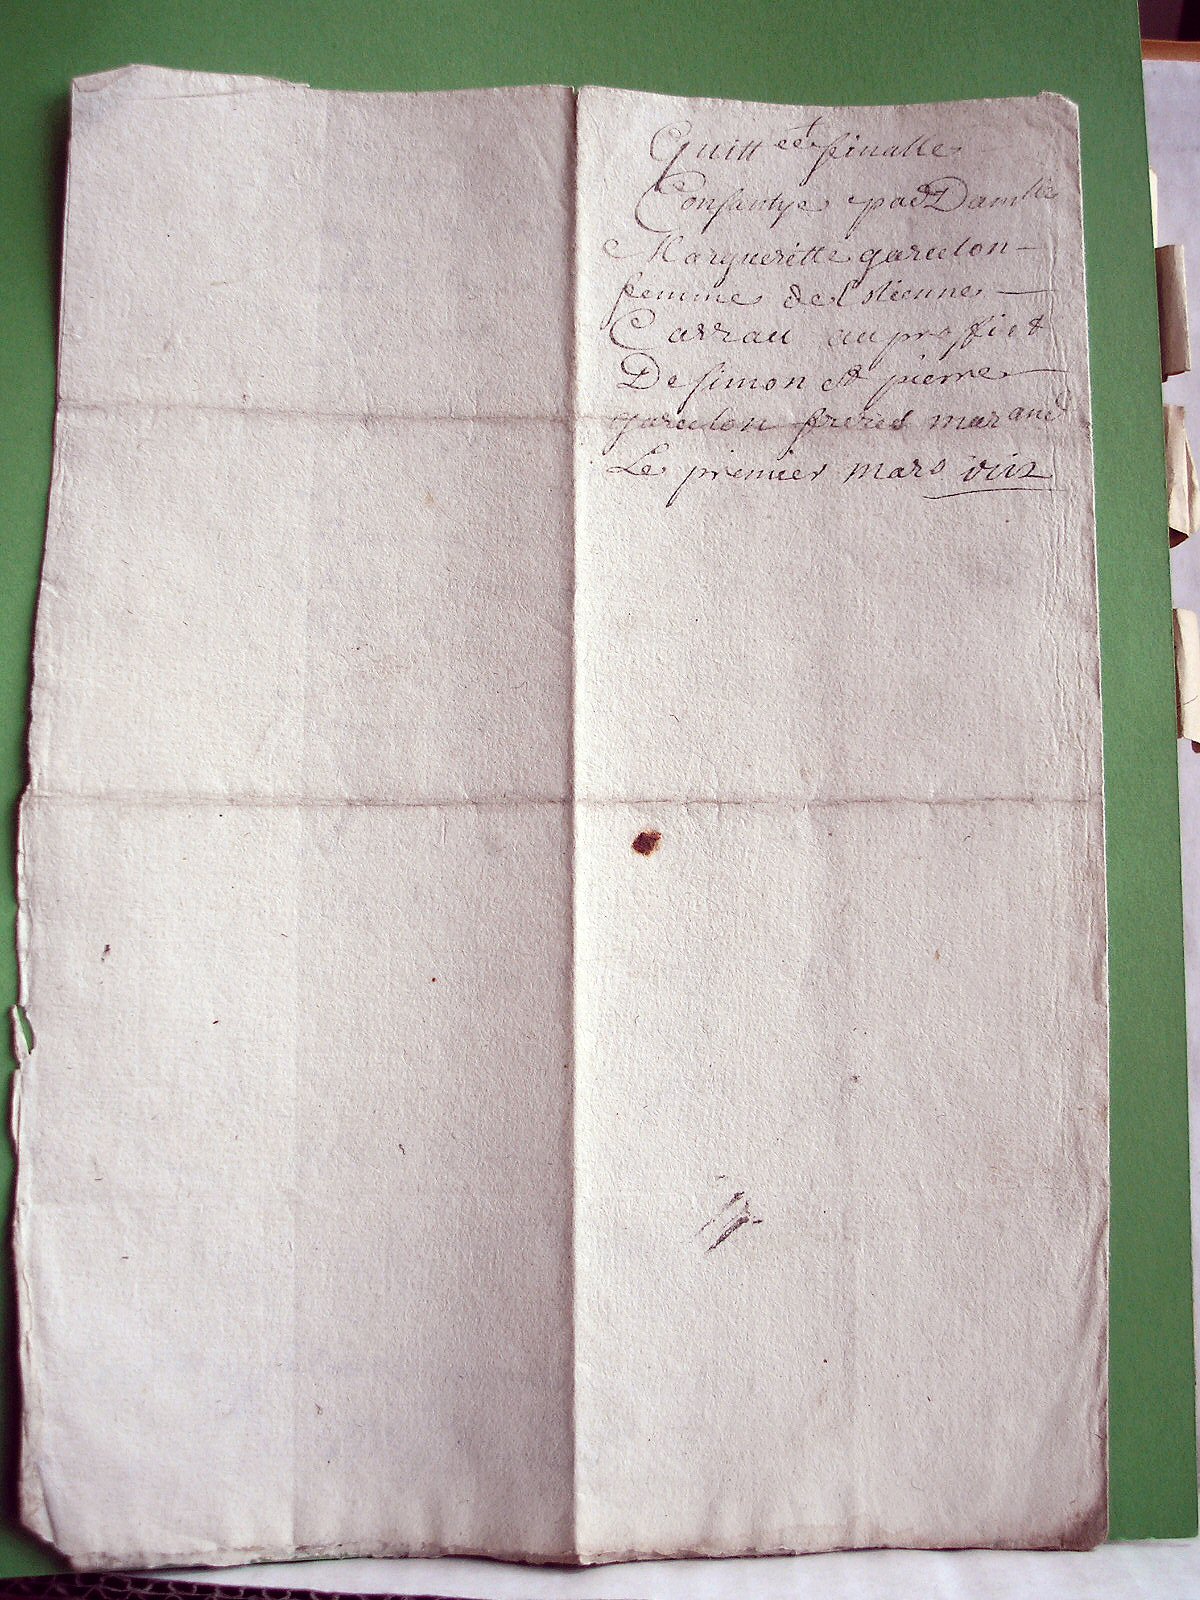 Quitt ce finalle
Consantye par Damlle
Margueritte garcelon
femme de Estienne
au proffict
De simon et pierre
garcelon freres
Le premier mars